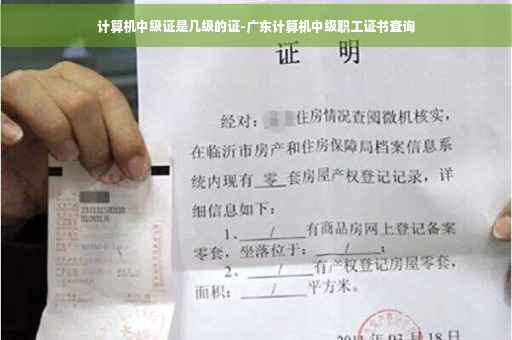 计算机中级证是几级的证-广东计算机中级职工证书查询
证 明
经对：住房情况查阅微机核实，
在临沂市房产和住房保障局档案信息系
统内现有 零 套房屋产权登记记录，详
细信息如下：
1、 / 有商品房网上登记备案
零套，坐落位于： / ；
2、 / 有产权登记房屋零套，
面积： / 平方米。
月18日